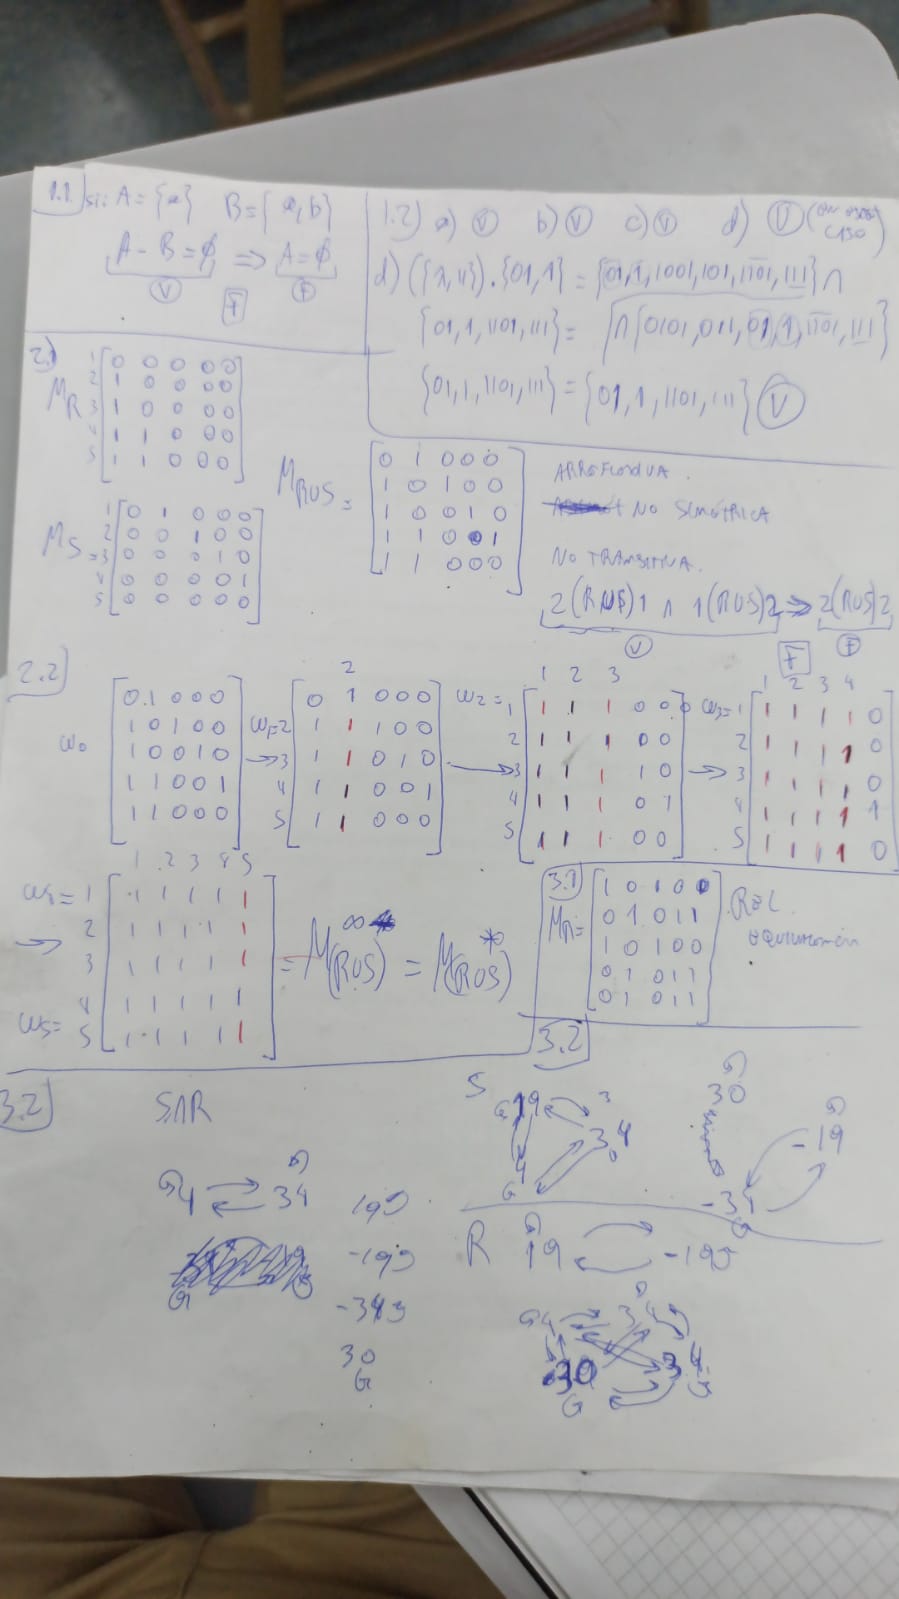 1.1 si: A = {a} B = {a, b}
A - B = ∅ ⇒ A = ∅
V F F
1.2) a) V b) V c) V d) V
d) ({λ, 11}) . {01, 1} = {01, 1, 1001, 101, 1101, 111} ∩
{01, 1, 1101, 111} = ∩ {0101, 011, 01, 1, 1101, 111}
{01, 1, 1101, 111} = {01, 1, 1101, 111} V
2.1
M_R
1 0 0 0 0 0
2 1 0 0 0 0
3 1 0 0 0 0
4 1 1 0 0 0
5 1 1 0 0 0
M_S =
1 0 1 0 0 0
2 0 0 1 0 0
3 0 0 0 1 0
4 0 0 0 0 1
5 0 0 0 0 0
M_R∪S =
0 1 0 0 0
1 0 1 0 0
1 0 0 1 0
1 1 0 0 1
1 1 0 0 0
ARREFLEXIVA
NO SIMÉTRICA
NO TRANSITIVA.
2(R∪S)1 ∧ 1(R∪S)2 ⇒ 2(R∪S)2
V F F
2.2
W0
0 1 0 0 0
1 0 1 0 0
1 0 0 1 0
1 1 0 0 1
1 1 0 0 0
→ W1 =
2
0 1 0 0 0
2 1 1 1 0 0
3 1 1 0 1 0
4 1 1 0 0 1
5 1 1 0 0 0
→ W2 =
1 2 3
1 1 1 1 0 0
2 1 1 1 0 0
3 1 1 1 1 0
4 1 1 1 0 1
5 1 1 1 0 0
→ W3 =
1 2 3 4
1 1 1 1 1 0
2 1 1 1 1 0
3 1 1 1 1 0
4 1 1 1 1 1
5 1 1 1 1 0
→ W4 = W5 =
1 2 3 4 5
1 1 1 1 1 1
2 1 1 1 1 1
3 1 1 1 1 1
4 1 1 1 1 1
5 1 1 1 1 1
= M∞(R∪S) = M*(R∪S)
3.1
M_R =
1 0 1 0 0
0 1 0 1 1
1 0 1 0 0
0 1 0 1 1
0 1 0 1 1
REL.
3.2
3.2
S∩R
4 34
19
-19
-34
30
S
19 34
4
30
-19
-34
R 19 -19
4 34
30